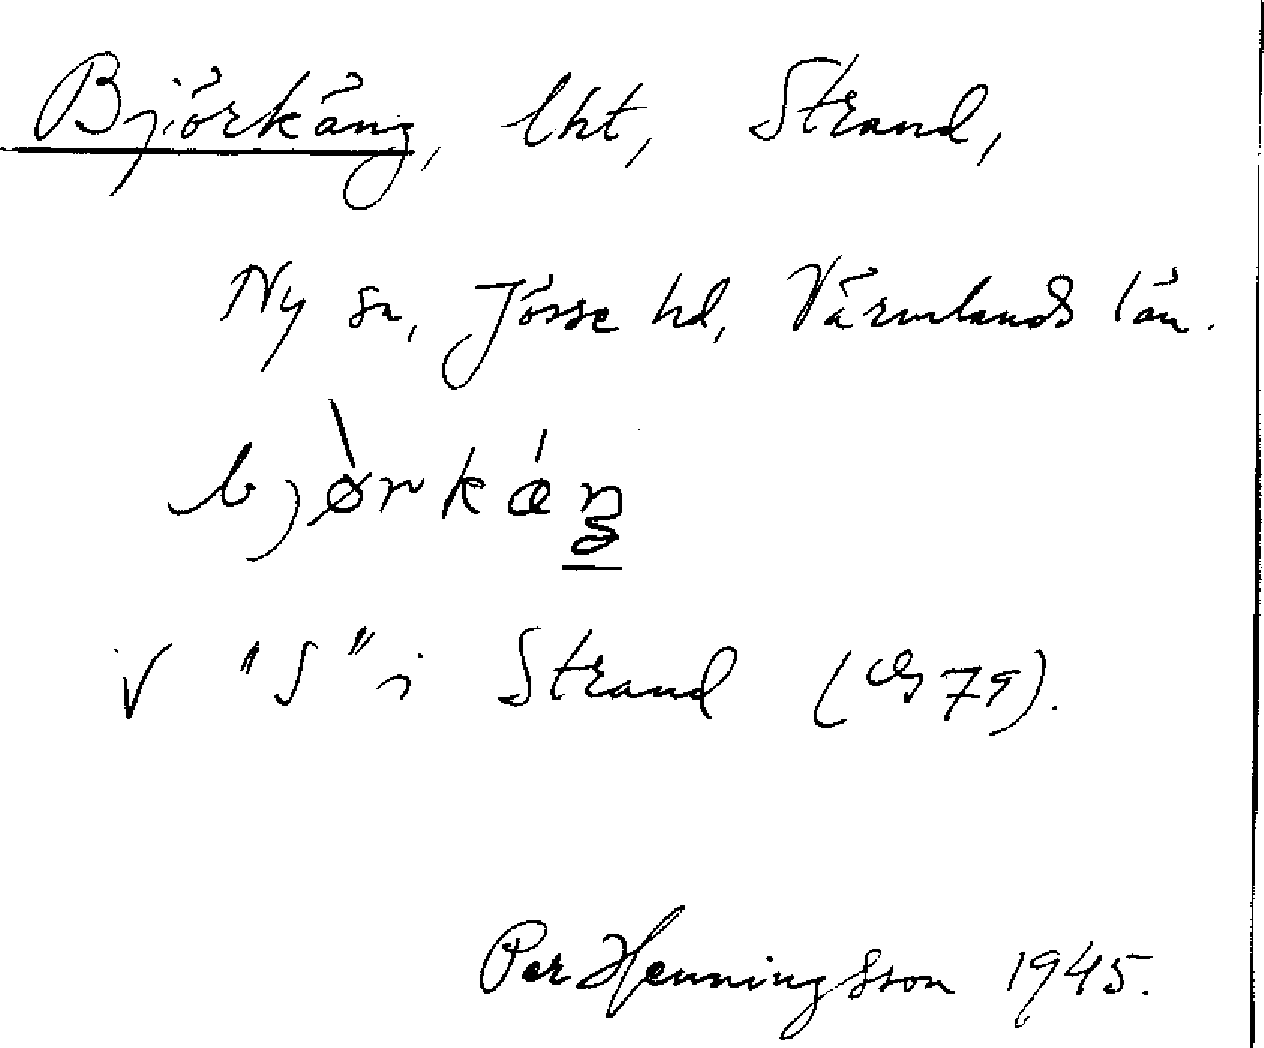 Björkäng, lht, Strand,
Ny sn, Jösse hd, Värmlands län.
bjø̀rkǽŋ
V "S" i Strand (79).
Per Henningsson 1945.